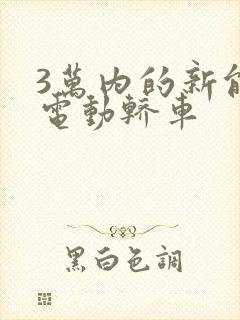 3萬内的新能
電動轎車
黑白色調